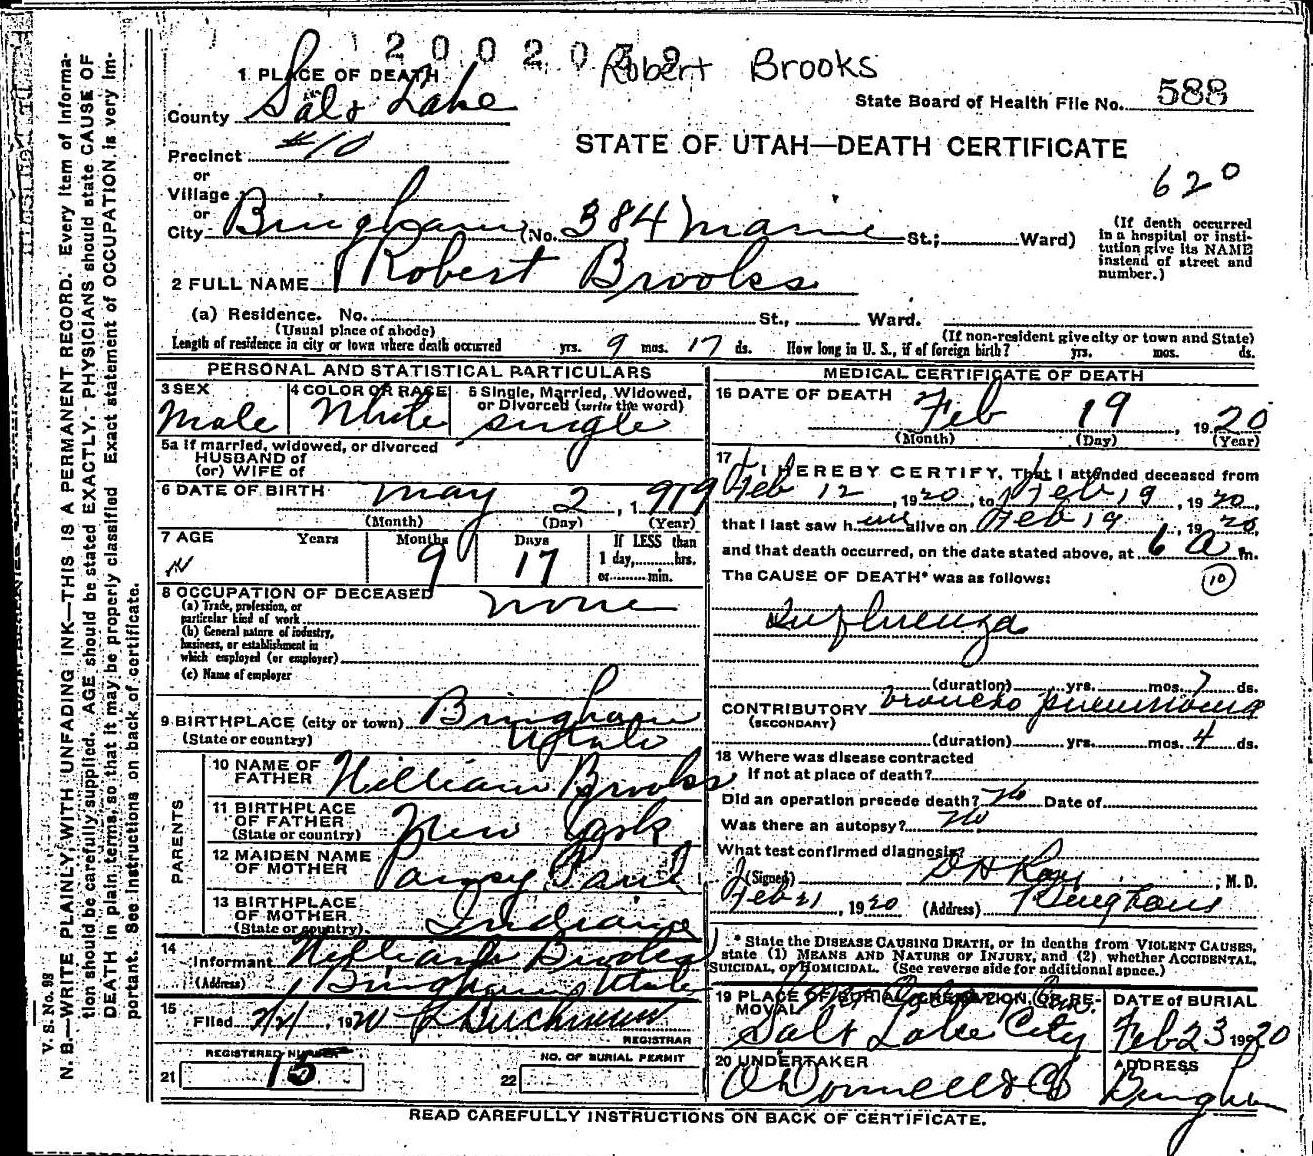 2002052
Robert Brooks
1 PLACE OF DEATH
County Salt Lake
State Board of Health File No. 588
Precinct #10
STATE OF UTAH—DEATH CERTIFICATE
or
Village
620
or
City Bingham (No. 384 Main St.; Ward)
(If death occurred in a hospital or institution give its NAME instead of street and number.)
2 FULL NAME Robert Brooks
(a) Residence. No. St., Ward.
(Usual place of abode) (If non-resident give city or town and State)
Length of residence in city or town where death occurred yrs. 9 mos. 17 ds. How long in U. S., if of foreign birth? yrs. mos. ds.
PERSONAL AND STATISTICAL PARTICULARS
3 SEX Male
4 COLOR OR RACE White
5 Single, Married, Widowed, or Divorced (write the word) single
5a If married, widowed, or divorced
HUSBAND of
(or) WIFE of
6 DATE OF BIRTH May 2, 1919
(Month) (Day) (Year)
7 AGE Years Months 9 Days 17 If LESS than 1 day, hrs. or min.
8 OCCUPATION OF DECEASED
(a) Trade, profession, or particular kind of work none
(b) General nature of industry, business, or establishment in which employed (or employer)
(c) Name of employer
9 BIRTHPLACE (city or town) Bingham
(State or country) Utah
PARENTS
10 NAME OF FATHER William Brooks
11 BIRTHPLACE OF FATHER (State or country) New York
12 MAIDEN NAME OF MOTHER Pansy
13 BIRTHPLACE OF MOTHER (State or country) Indiana
14 Informant William Brooks
(Address) Bingham Utah
15 Filed 2/21, 1920
REGISTRAR
REGISTERED NUMBER
21 15
NO. OF BURIAL PERMIT
22
MEDICAL CERTIFICATE OF DEATH
16 DATE OF DEATH Feb 19, 1920
(Month) (Day) (Year)
17 I HEREBY CERTIFY, That I attended deceased from
Feb 12, 1920, to Feb 19, 1920,
that I last saw him alive on Feb 19, 1920,
and that death occurred, on the date stated above, at 6 A m.
The CAUSE OF DEATH* was as follows:
10
Influenza
(duration) yrs. mos. 7 ds.
CONTRIBUTORY Broncho pneumonia
(SECONDARY)
(duration) yrs. mos. 4 ds.
18 Where was disease contracted
If not at place of death?
Did an operation precede death? No Date of
Was there an autopsy? No
What test confirmed diagnosis?
(Signed) D H Ray, M. D.
Feb 21, 1920 (Address) Bingham
* State the DISEASE CAUSING DEATH, or in deaths from VIOLENT CAUSES, state (1) MEANS AND NATURE OF INJURY, and (2) whether ACCIDENTAL, SUICIDAL, or HOMICIDAL. (See reverse side for additional space.)
19 PLACE OF BURIAL, CREMATION, OR REMOVAL
Salt Lake City
DATE OF BURIAL
Feb 23 1920
20 UNDERTAKER
O'Donnell & Co
ADDRESS
Bingham
READ CAREFULLY INSTRUCTIONS ON BACK OF CERTIFICATE.
V. S. No. 98
N. B.—WRITE PLAINLY, WITH UNFADING INK—THIS IS A PERMANENT RECORD. Every item of information should be carefully supplied. AGE should be stated EXACTLY. PHYSICIANS should state CAUSE OF DEATH in plain terms, so that it may be properly classified. Exact statement of OCCUPATION is very important. See instructions on back of certificate.